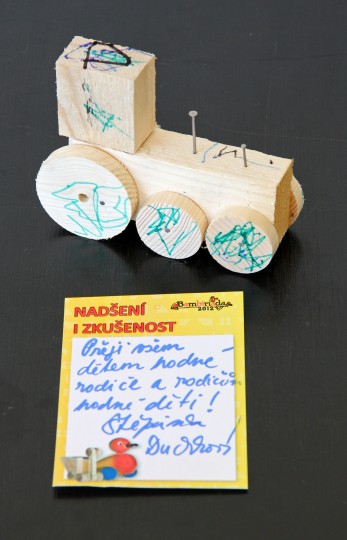 NADŠENÍ
I ZKUŠENOST
Bambiriáda
2012
Přeji všem
dětem hodné
rodiče a rodičům
hodné děti!
Štěpánka
Duchková